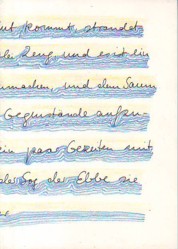 kommt, strandet
Zeug und es ist ein
machen, und dem Saum
Gegenstände aufzu-
ein paar Gezeiten mit
der Sog der Ebbe sie